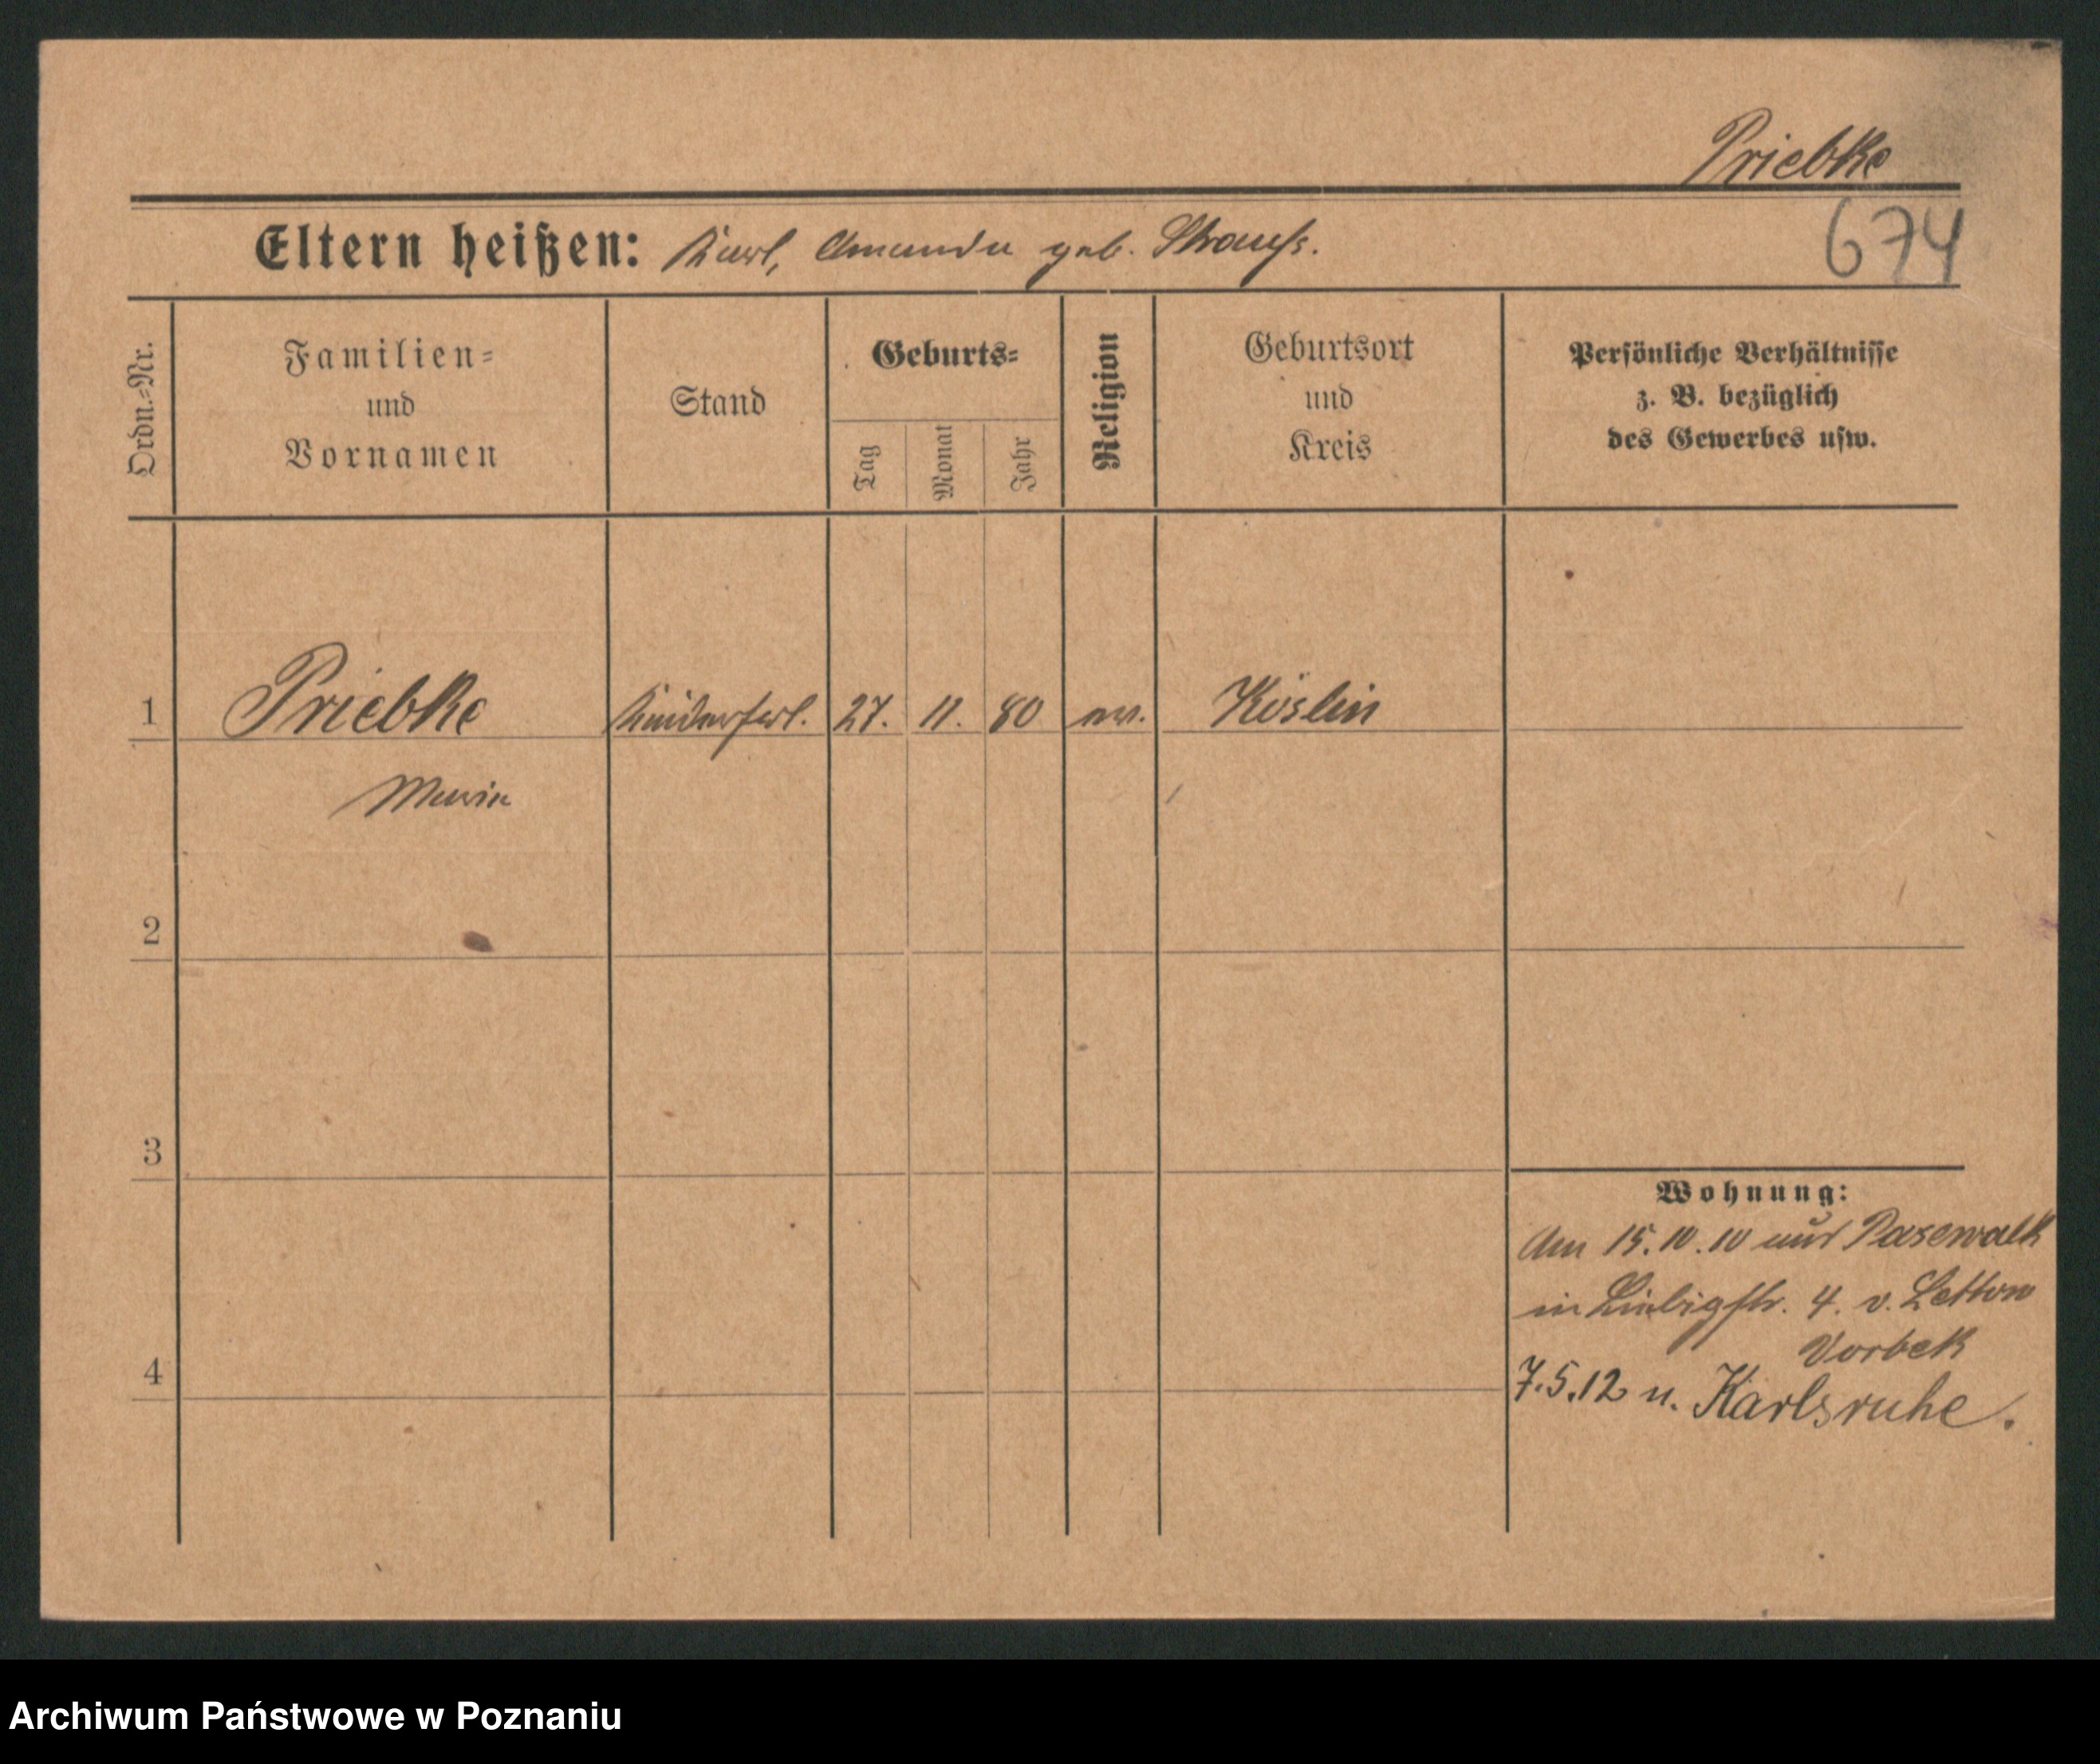 Priebke
674
Eltern heißen: Karl, Amanda geb. Strauß.
Ordn.=Nr.
Familien=
und
Vornamen
Stand
Geburts=
Tag
Monat
Jahr
Religion
Geburtsort
und
Kreis
Persönliche Verhältnisse
z. B. bezüglich
des Gewerbes usw.
1 Priebke Kinderfrl. 27. 11. 80 ev. Köslin
Maria
2
3
4
Wohnung:
Am 15.10.10 aus Pasewalk
in Liebigstr. 4. v. Lettow
Vorbek
7.5.12 n. Karlsruhe.
Archiwum Państwowe w Poznaniu